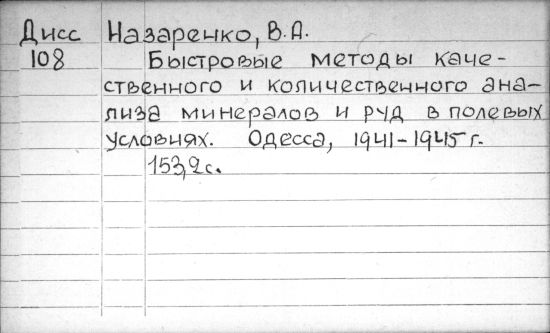 Дисс Назаренко, В.А.
108 Быстровые методы каче-
ственного и количественного ана-
лиза минералов и руд в полевых
условиях. Одесса, 1941-1945 г.
153,2с.